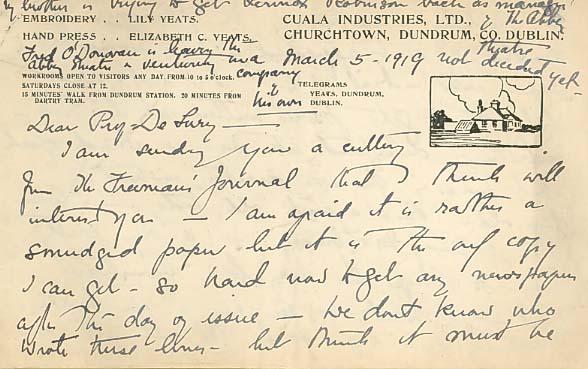 my brother is trying to get Lennox Robinson back as manager
of The Abbey
Theatre
not decided yet
EMBROIDERY . . LILY YEATS.
HAND PRESS . . ELIZABETH C. YEATS.
CUALA INDUSTRIES, LTD.,
CHURCHTOWN, DUNDRUM, CO. DUBLIN.
Fred O'Donovan is leaving the
Abby Theatre & venturing on a
company
of
his own
March 5 - 1919
WORKROOMS OPEN TO VISITORS ANY DAY. FROM 10 to 5 o'clock.
SATURDAYS CLOSE AT 12.
15 MINUTES' WALK FROM DUNDRUM STATION. 20 MINUTES FROM
DARTRY TRAM.
TELEGRAMS
YEATS, DUNDRUM,
DUBLIN.
Dear Prof De Lury —
I am sending you a cutting
from The Freeman's Journal that I think will
interest you — I am afraid it is rather a
smudged paper but it is the only copy
I can get - so hard now to get any newspapers
after the day of issue — We dont know who
wrote these lines - but think it must be